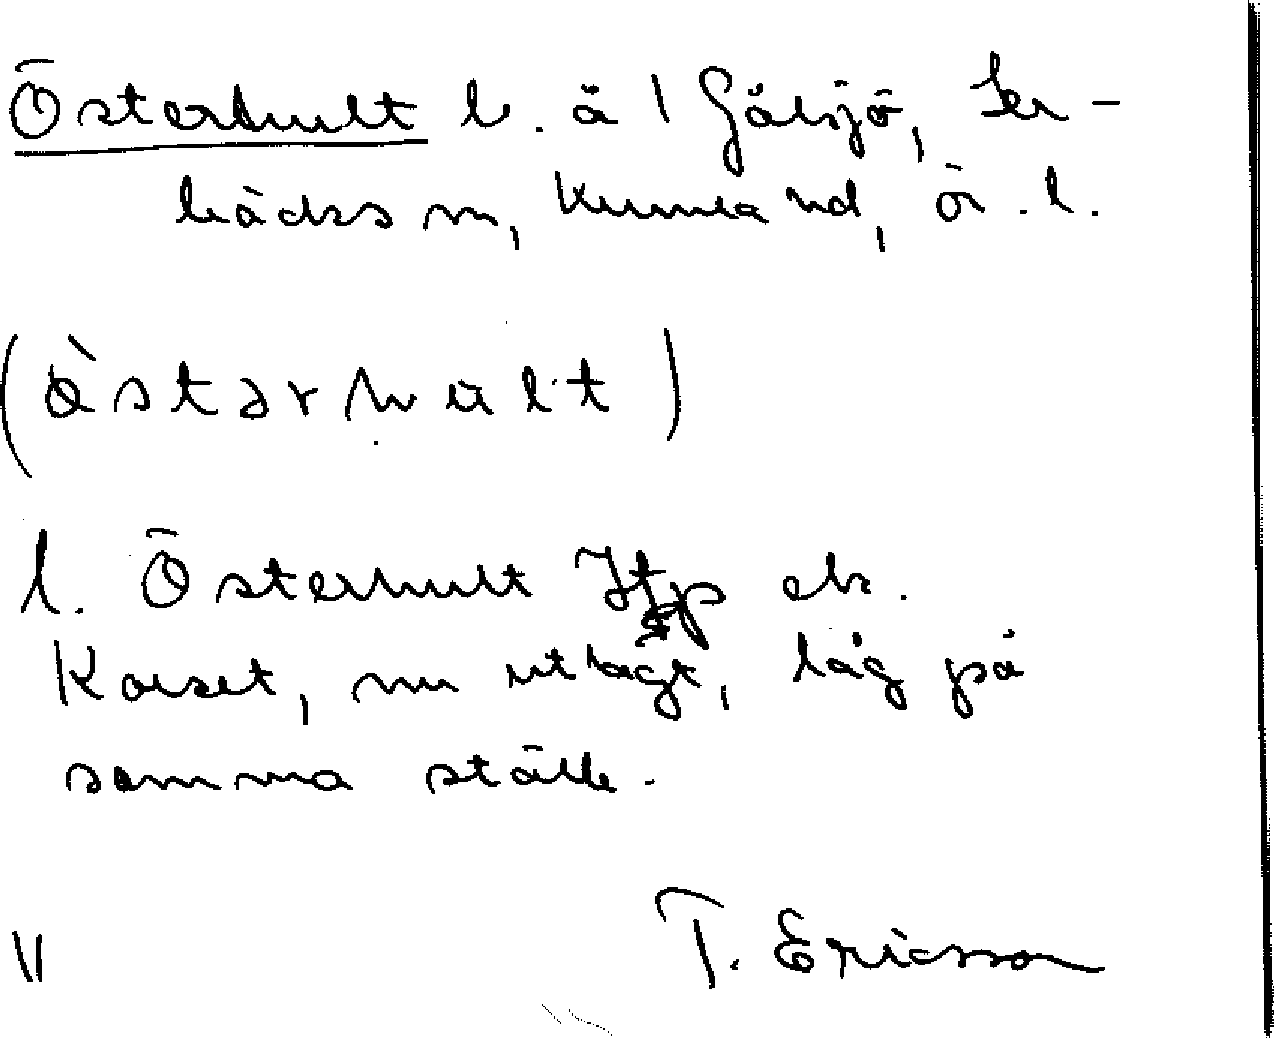 Österhult l. å 1 Gälsjö, Ler-
bäcks sn, Kumla hd, ör. l.
(östərhult)
l. Österhult Htp ek.
Korset, nu utlagt, låg på
samma ställe.
T. Ericsson